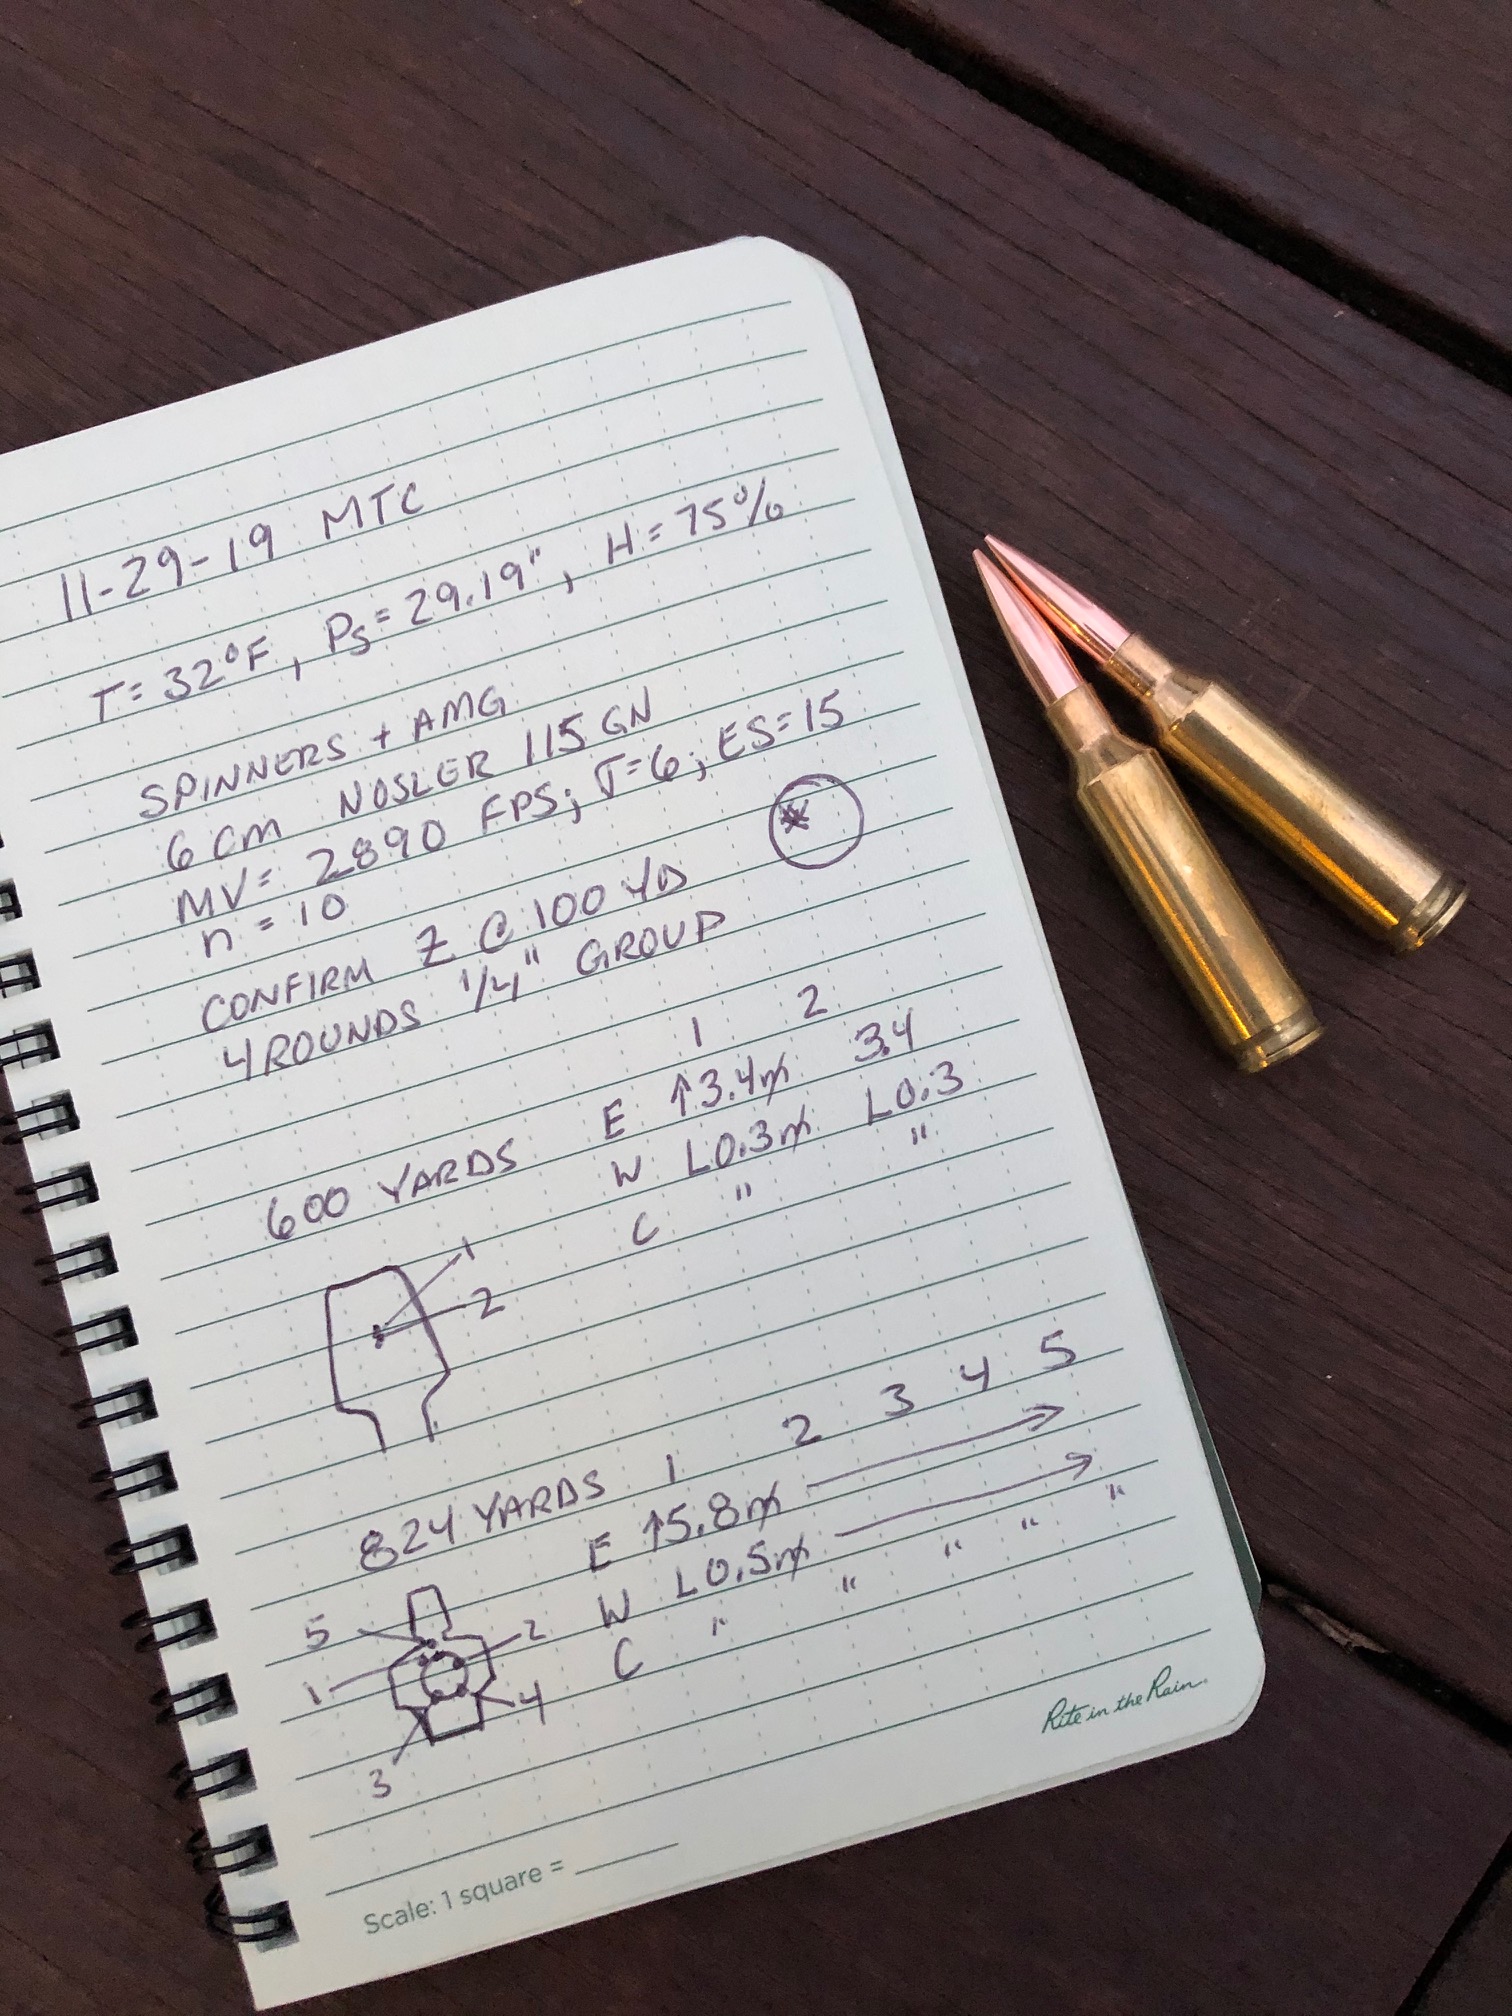 11-29-19 MTC
T = 32°F, Ps = 29.19", H = 75%
SPINNERS + AMG
6 CM NOSLER 115 GN
MV = 2890 FPS; σ=6; ES=15
n = 10
CONFIRM Z @ 100 YD
4 ROUNDS 1/4" GROUP
1 2
600 YARDS E ↑3.4m 3.4
W L0.3m L0.3
C " "
1
2
1 2 3 4 5
824 YARDS E ↑5.8m →
W L0.5m →
C " " " " "
5 2
1 4
3
Rite in the Rain
Scale: 1 square = ____